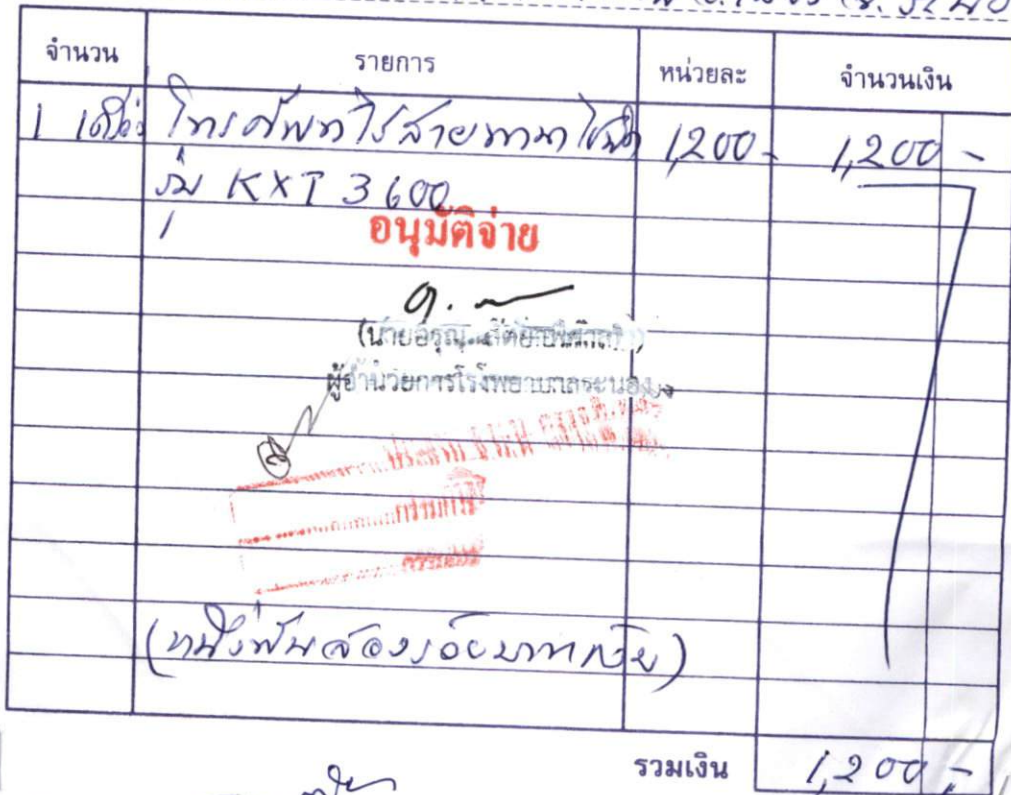 จำนวน รายการ หน่วยละ จำนวนเงิน
1 เครื่อง โทรศัพท์ไร้สายพานาโซนิค 1,200- 1,200 -
รุ่น KXT 3600
อนุมัติจ่าย
(นายอรุณ
ผู้อำนวยการโรงพยาบาลระนอง
กรรมการ
กรรมการ
(หนึ่งพันสองร้อยบาทถ้วน)
รวมเงิน 1,200 -